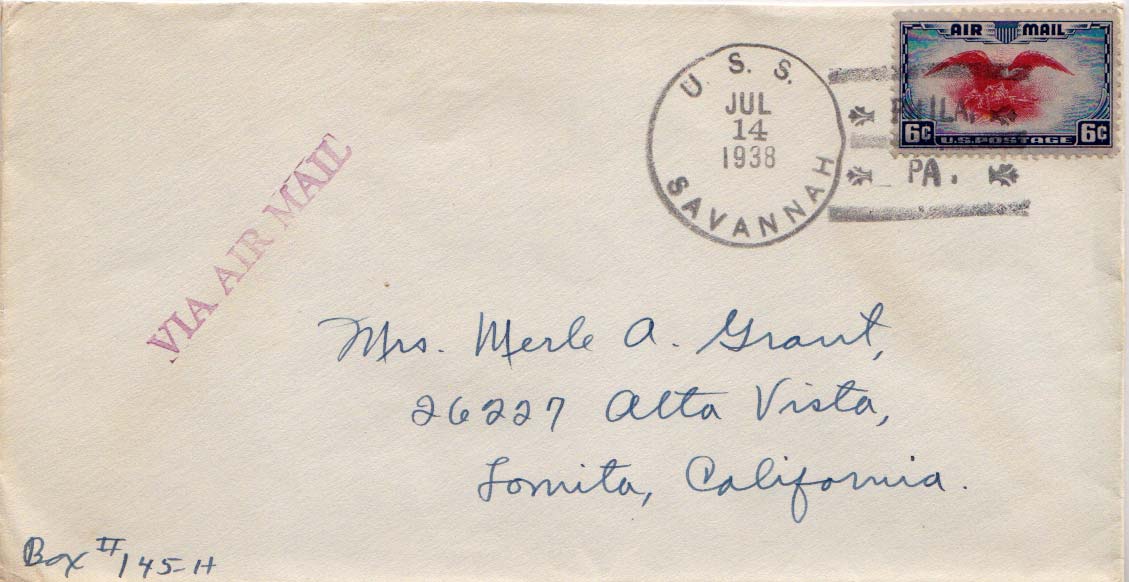 U. S. S.
JUL
14
1938
SAVANNAH
PHILA.
PA.
AIR MAIL
6¢ U.S. POSTAGE 6¢
VIA AIR MAIL
Mrs. Merle A. Grant,
26227 Alta Vista,
Lomita, California.
Box # 145-H